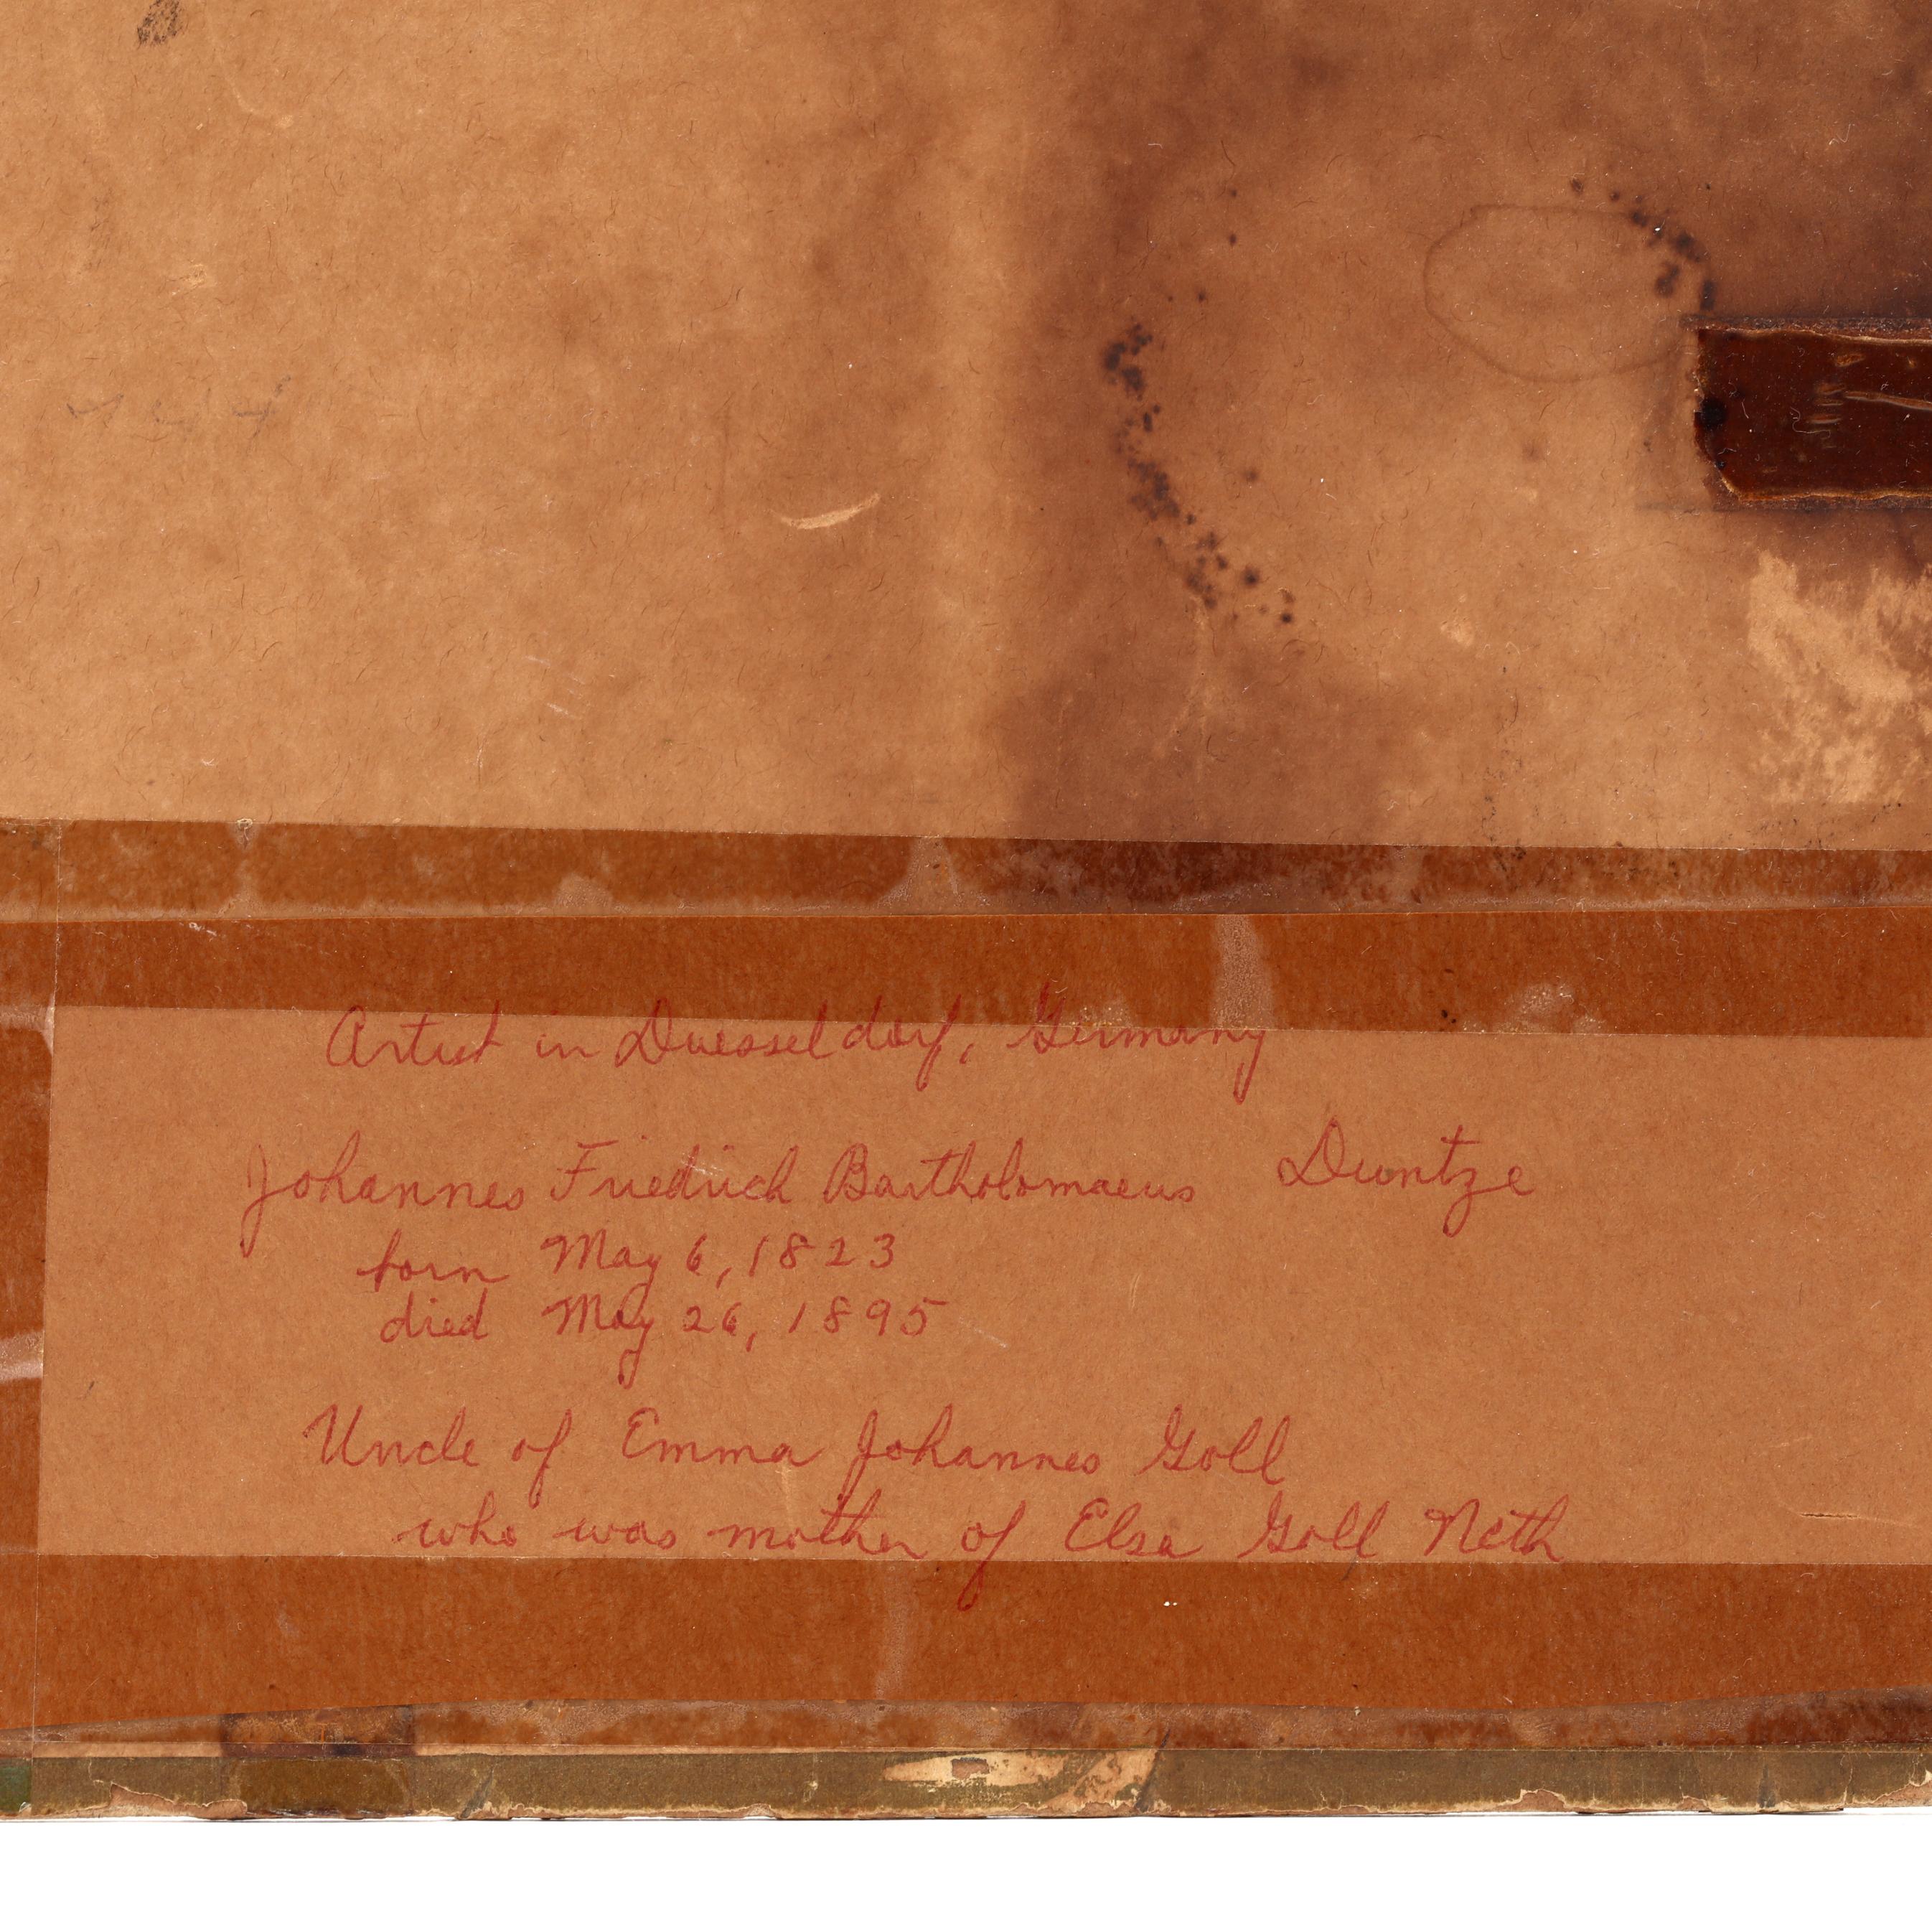 Artist in Duesseldorf, Germany
Johannes Friedrich Bartholomaeus Duntze
born May 6, 1823
died May 26, 1895
Uncle of Emma Johannes Goll
who was mother of Elsa Goll Neth